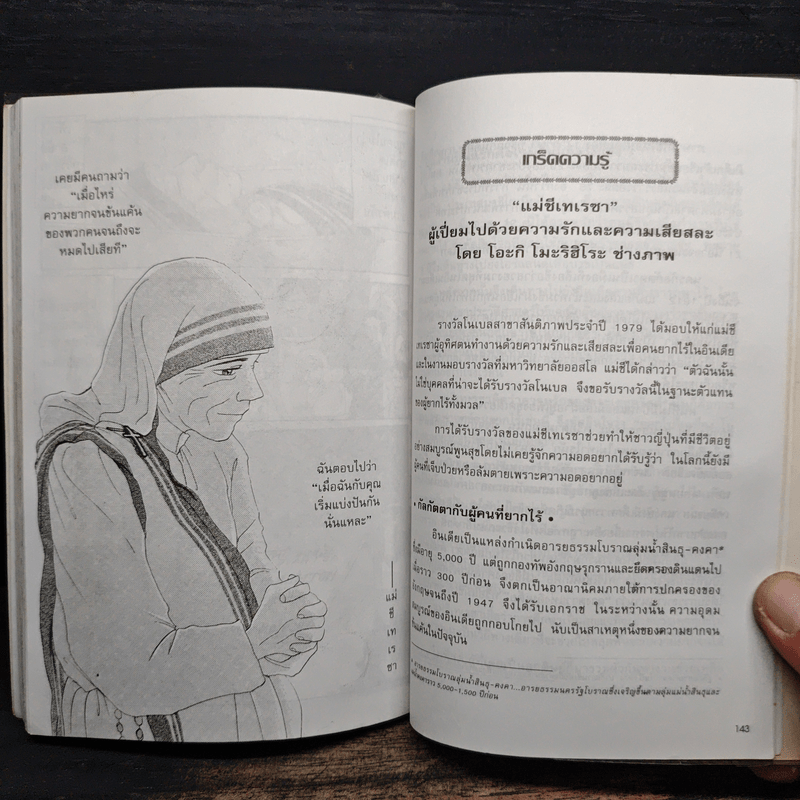 เคยมีคนถามว่า
“เมื่อไหร่
ความยากจนข้นแค้น
ของพวกคนจนถึงจะ
หมดไปเสียที”
ฉันตอบไปว่า
“เมื่อฉันกับคุณ
เริ่มแบ่งปันกัน
นั่นแหละ”
แม่ชีเทเรซา
เกร็ดความรู้
“แม่ชีเทเรซา”
ผู้เปี่ยมไปด้วยความรักและความเสียสละ
โดย โอะกิ โมะริฮิโระ ช่างภาพ
รางวัลโนเบลสาขาสันติภาพประจำปี 1979 ได้มอบให้แก่แม่ชี
เทเรซาผู้อุทิศตนทำงานด้วยความรักและเสียสละเพื่อคนยากไร้ในอินเดีย
และในงานมอบรางวัลที่มหาวิทยาลัยออสโล แม่ชีได้กล่าวว่า “ตัวฉันนั้น
ไม่ใช่บุคคลที่น่าจะได้รับรางวัลโนเบล จึงขอรับรางวัลนี้ในฐานะตัวแทน
ของผู้ยากไร้ทั้งมวล”
การได้รับรางวัลของแม่ชีเทเรซาช่วยทำให้ชาวญี่ปุ่นที่มีชีวิตอยู่
อย่างสมบูรณ์พูนสุขโดยไม่เคยรู้จักความอดอยากได้รับรู้ว่า ในโลกนี้ยังมี
ผู้คนที่เจ็บป่วยหรือล้มตายเพราะความอดอยากอยู่
• กัลกัตตากับผู้คนที่ยากไร้ •
อินเดียเป็นแหล่งกำเนิดอารยธรรมโบราณลุ่มน้ำสินธุ-คงคา*
ที่มีอายุ 5,000 ปี แต่ถูกกองทัพอังกฤษรุกรานและยึดครองดินแดนไป
เมื่อราว 300 ปีก่อน จึงตกเป็นอาณานิคมภายใต้การปกครองของ
อังกฤษจนถึงปี 1947 จึงได้รับเอกราช ในระหว่างนั้น ความอุดม
สมบูรณ์ของอินเดียถูกกอบโกยไป นับเป็นสาเหตุหนึ่งของความยากจน
ข้นแค้นในปัจจุบัน
* อารยธรรมโบราณลุ่มน้ำสินธุ-คงคา...อารยธรรมนครรัฐโบราณซึ่งเจริญขึ้นตามลุ่มแม่น้ำสินธุและ
5,000-1,500 ปีก่อน
143